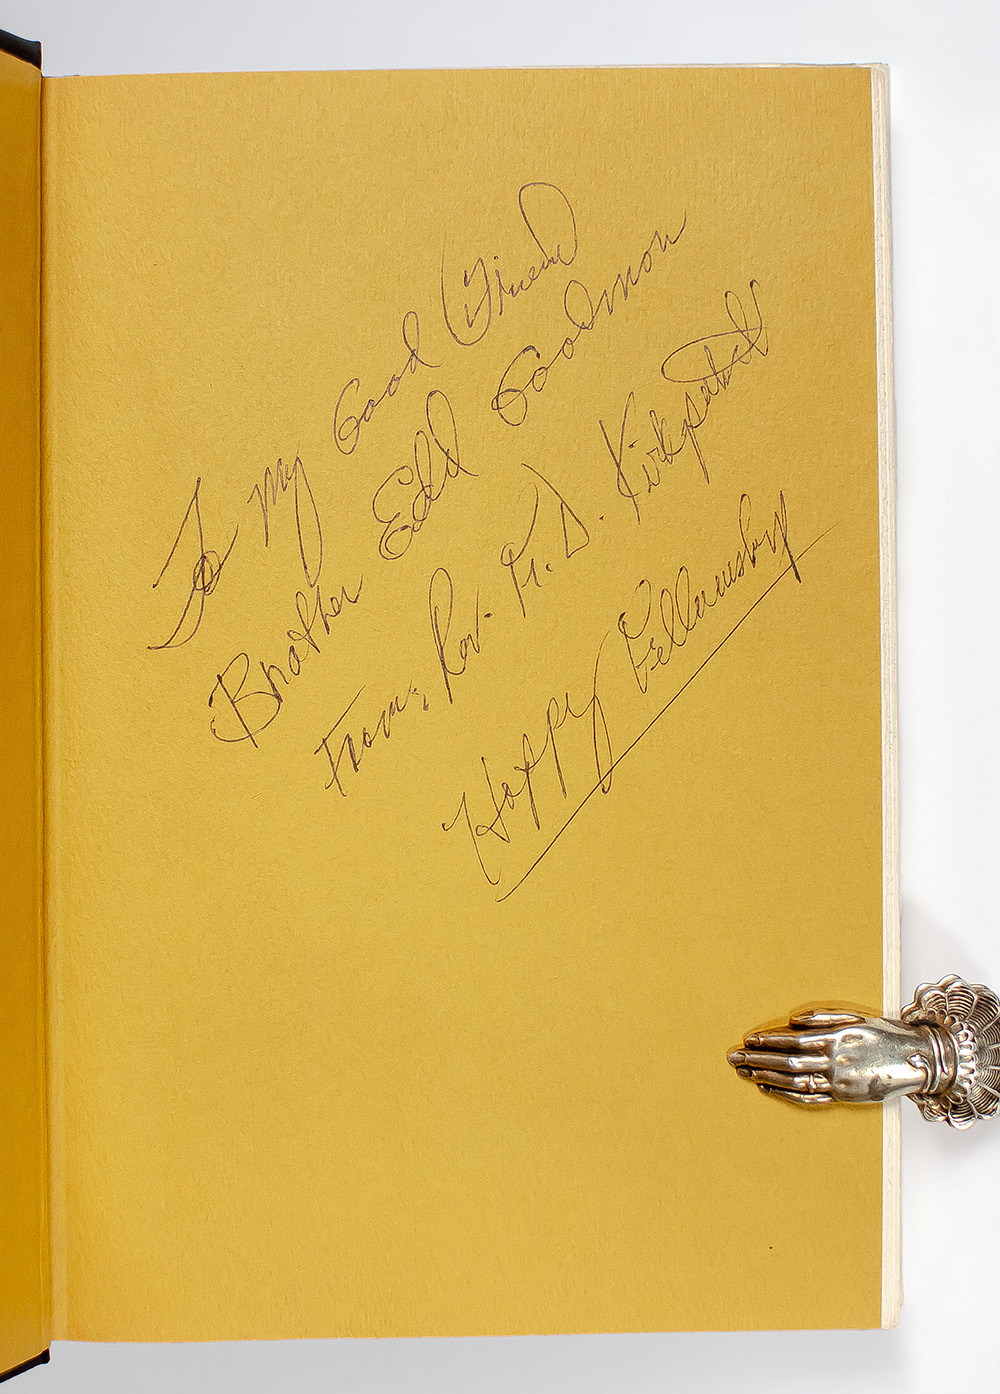 To My Good Friend
Brother Edd Goodman
From, Rev. Fr. D. Kirkpatrick
Happy